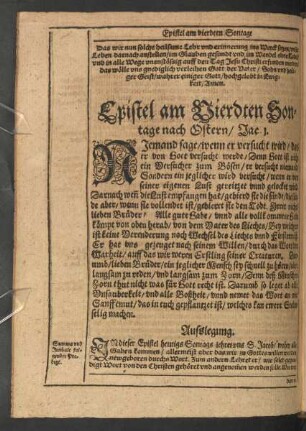 Epistel am vierdten Sontage
Das wir nun solche heilsame Lehr vnd erinnerung ins Werck
Leben darnach anstellen/ im Glauben gesundt vnd im Wandel
vnd in alle Wege vnanstössig auff den Tag Jesu Christi erfunden werden/
das wölle vns gnediglich verleihen Gott der Vater/ Sohn vnd heili-
ger Geist/ wahrer einiger Gott/ hochgelobt in Ewig-
keit/ Amen.
Epistel am Vierdten Son-
tage nach Ostern/ Jac. 1.
Niemand sage/ wenn er versucht wird/ das
er von Gott versucht werde/ Denn Gott ist nicht
ein Versucher zum Bösen/ er versucht niemand
Sondern ein jeglicher wird versucht/ wenn er von
seiner eigenen Lust gereitzet vnd gelocket wird
Darnach wenn die Lust empfangen hat/ gebieret sie die Sünde/ die Sün-
de aber/ wenn sie vollendet ist/ gebieret sie den Todt. Irret nicht
lieben Brüder/ Alle gute Gabe/ vnd alle vollkommene
kömpt von oben herab/ von dem Vater des Liechts/ Bey welchem
ist keine Verenderung noch Wechsel des Liechts vnd Finsternis
Er hat vns gezeuget nach seinem Willen/ durch das Wort der
Warheit/ auff das wir weren Erstling seiner Creaturen.
lieben Brüder/ ein jeglicher Mensch sey schnell zu hören/
langsam zu reden/ vnd langsam zum Zorn/ Denn des Menschen
Zorn thut nicht was für Gott recht ist. Darumb so leget ab alle
Vnsauberkeit/ vnd alle Bosheit/ vnd nemet das Wort an mit
Sanfftmut/ das in euch gepflantzet ist/ welchs kan ewre Seelen
selig machen.
Außlegung.
Summa vnd
Predigt.
In dieser Epistel heutigs Sontags lehret vns S. Jacob/ woher alle
Gaben kommen/ allermeist aber das wir zu Gottes
newgeboren durchs Wort. Zum andern Lehret er/ wie solch gepre-
digt Wort von den Christen gehöret vnd angenommen werden